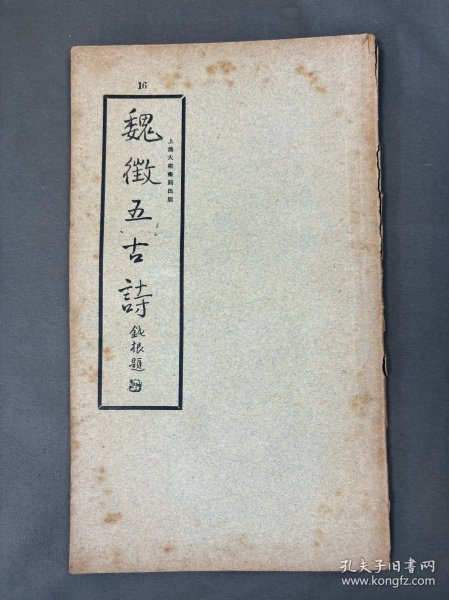 16
上海大众书局出版
魏徵五古詩
鈍根題
孔夫子旧书网
www.kongfz.com